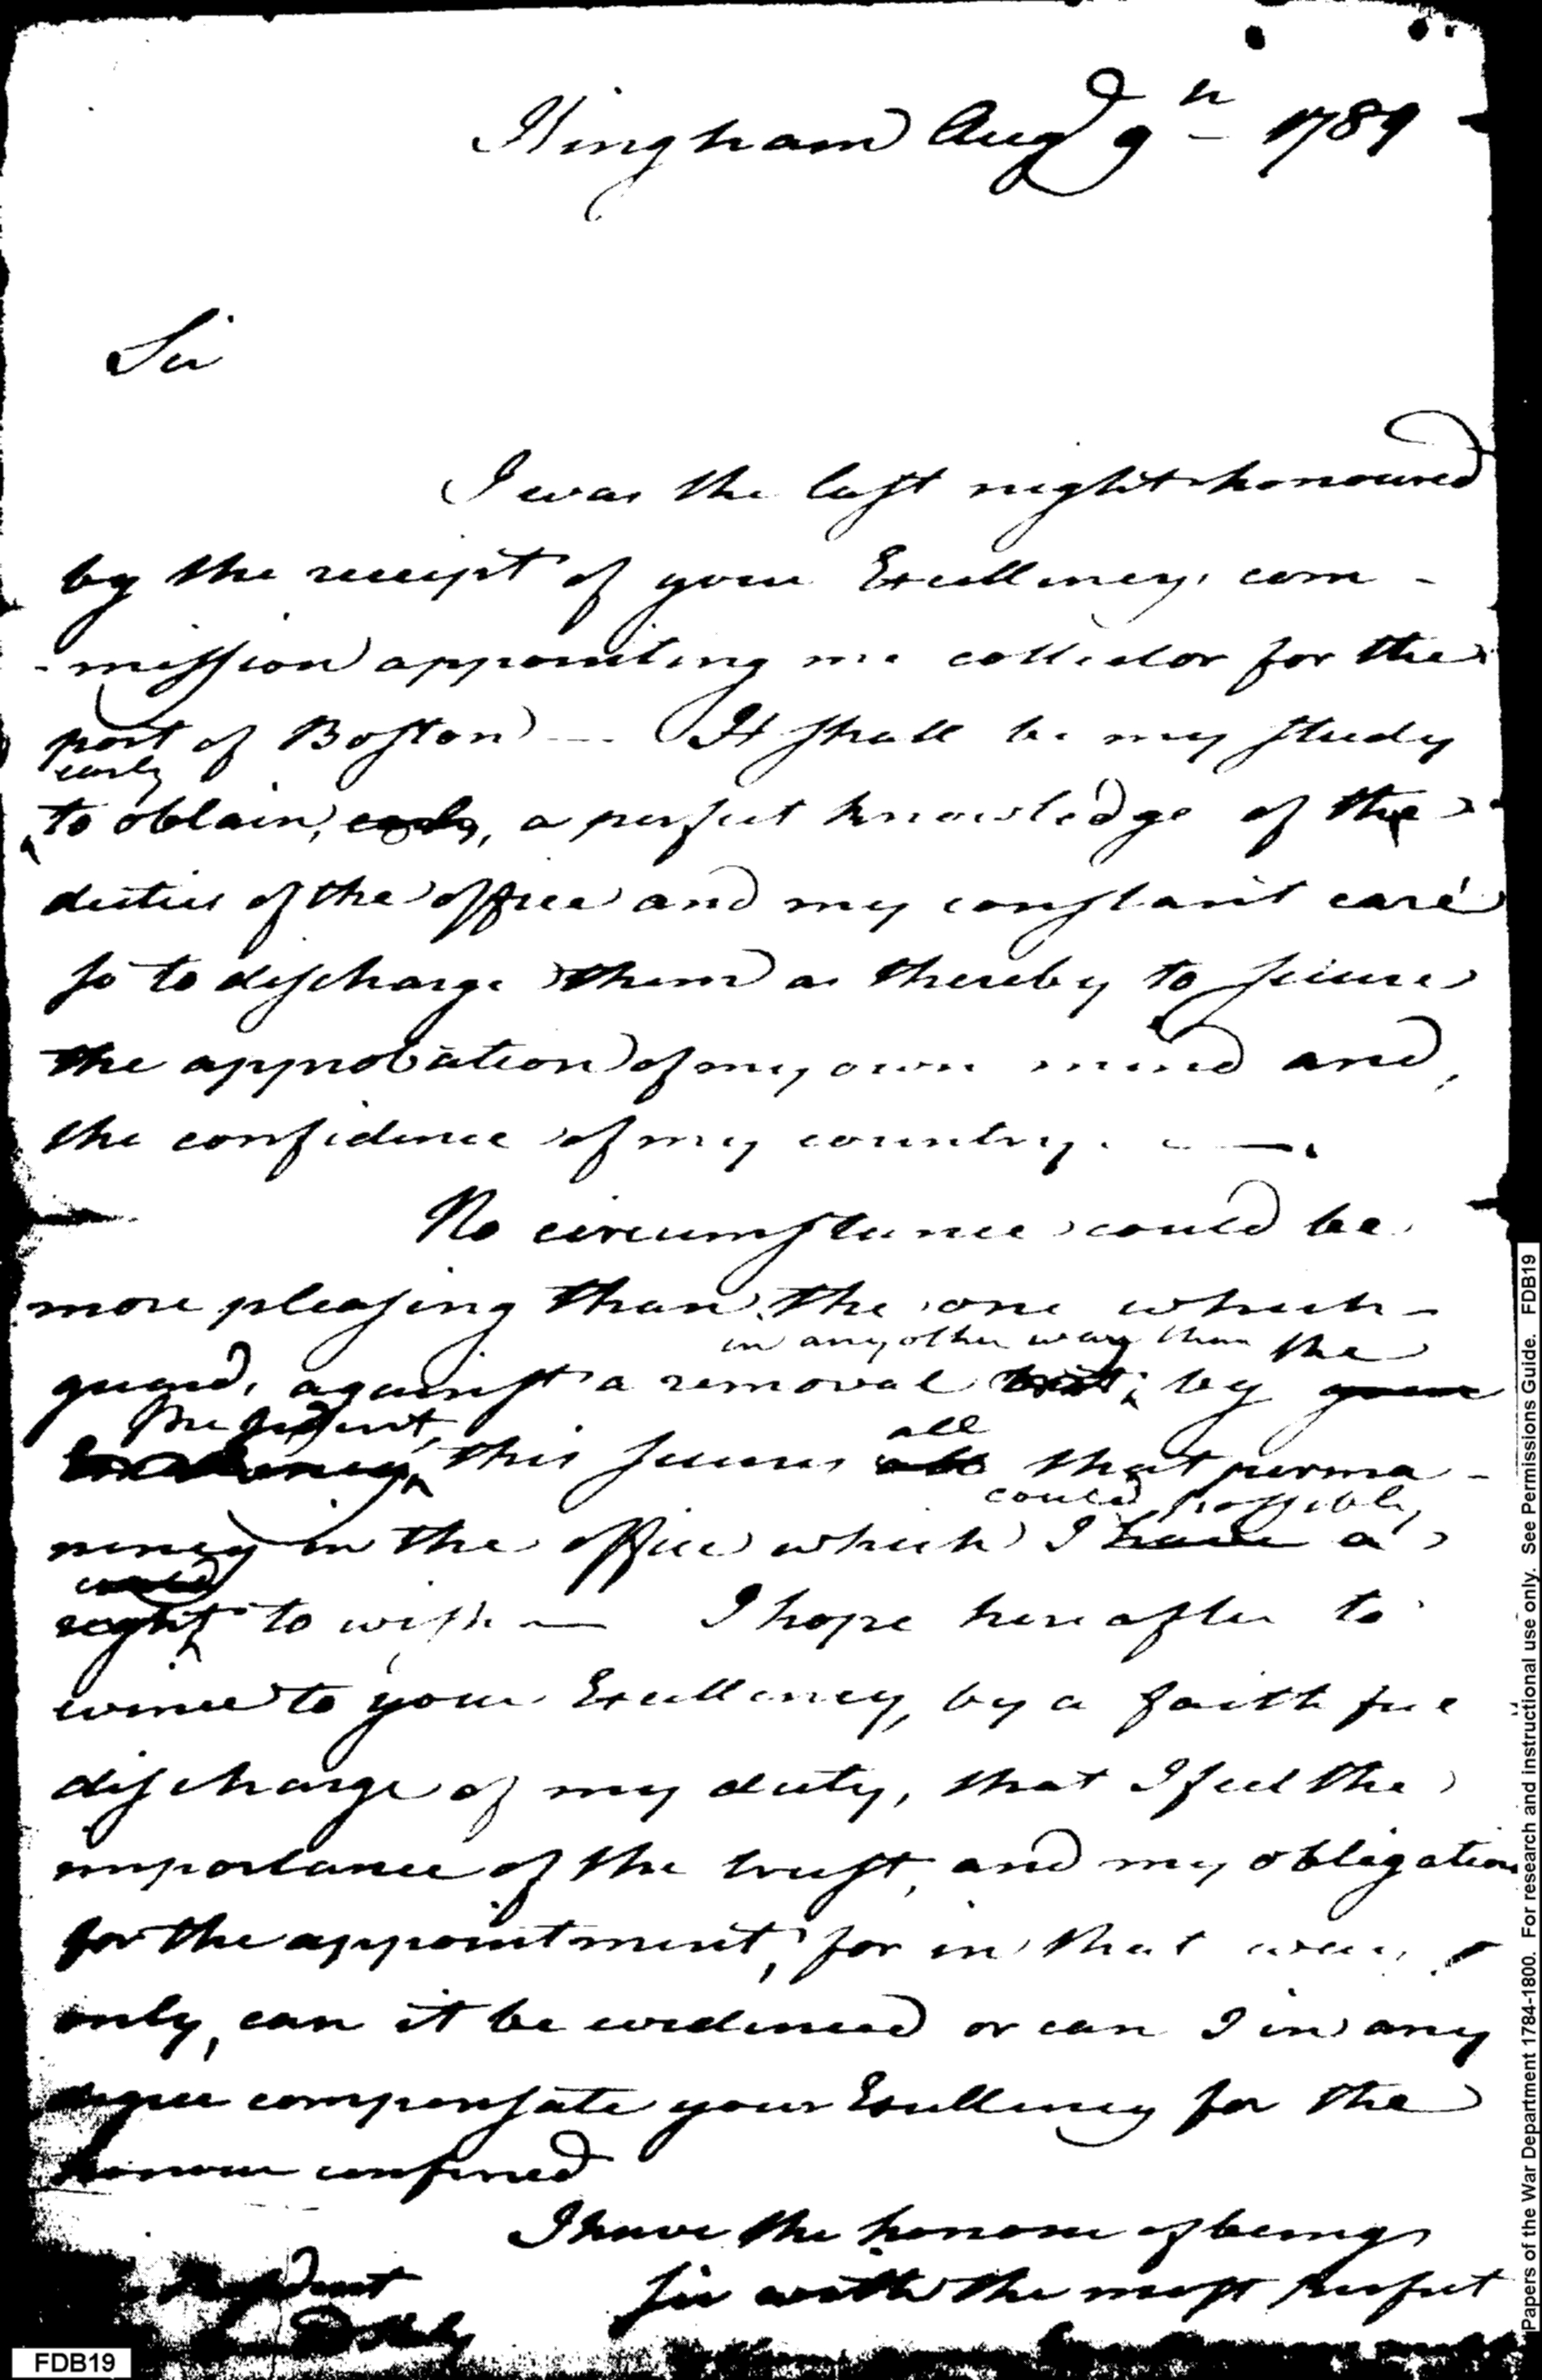 Hingham Augt 9th 1789
Sir
I was the last night honoured
by the receipt of your Excellencys com-
-mission appointing me collector for the
port of Boston — It shall be my study
early
to obtain, early, a perfect knowledge of the
duties of the office and my constant care
so to discharge them as thereby to secure
the approbation of my own mind and,
the confidence of my country. —
No circumstance could be
more pleasing than the one which
in any other way than the
guards against a removal but, by your
President,
Excellency, this secures all that perma-
all
could possibly
nency in the office which I have a
could
right to wish — I hope hereafter to
evince to your Excellency, by a faithful
discharge of my duty, that I feel the
importance of the trust, and my obligation
for the appointment, for in that way
only, can it be evidenced or can I in any
degree compensate your Excellency for the
honour conferred
I have the honour of being
Sir with the most perfect
President
Papers of the War Department 1784-1800. For research and instructional use only. See Permissions Guide. FDB19
FDB19